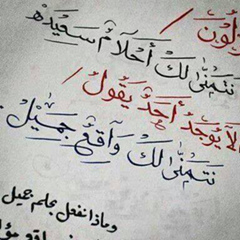 يقولون /
نتمنى لك أحلام سعيده
ألا يوجد أحد يقول /
نتمنى لك واقع جميل
وماذا نفعل بحلم جميل